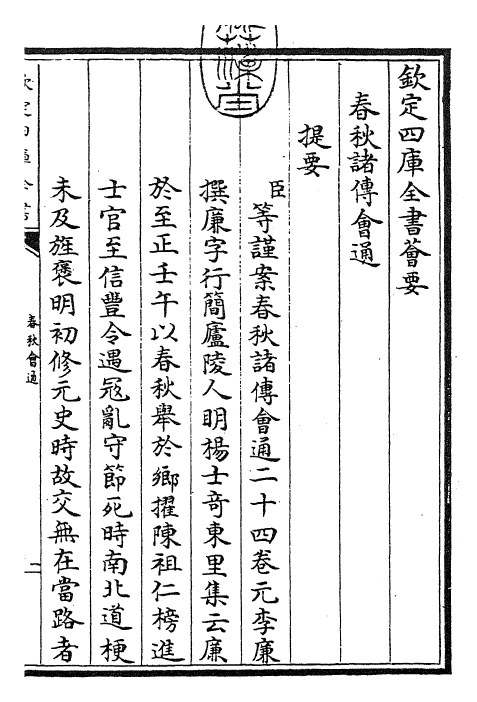 欽定四庫全書薈要
春秋諸傳會通
提要
臣等謹案春秋諸傳會通二十四卷元李廉
撰廉字行簡廬陵人明楊士竒東里集云廉
於至正壬午以春秋舉於鄉擢陳祖仁榜進
士官至信豐令遇冦亂守節死時南北道梗
未及旌褒明初修元史時故交無在當路者
欽定四庫全書
春秋會通
二